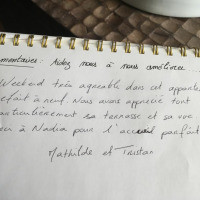 mmentaires: Aidez nous à nous améliorer...
Weekend très agréable dans cet apparte
efait à neuf. Nous avons apprécié tout
articulièrement sa terrasse et sa vue
à Nadia pour l'accueil parfait
Mathilde et Tristan